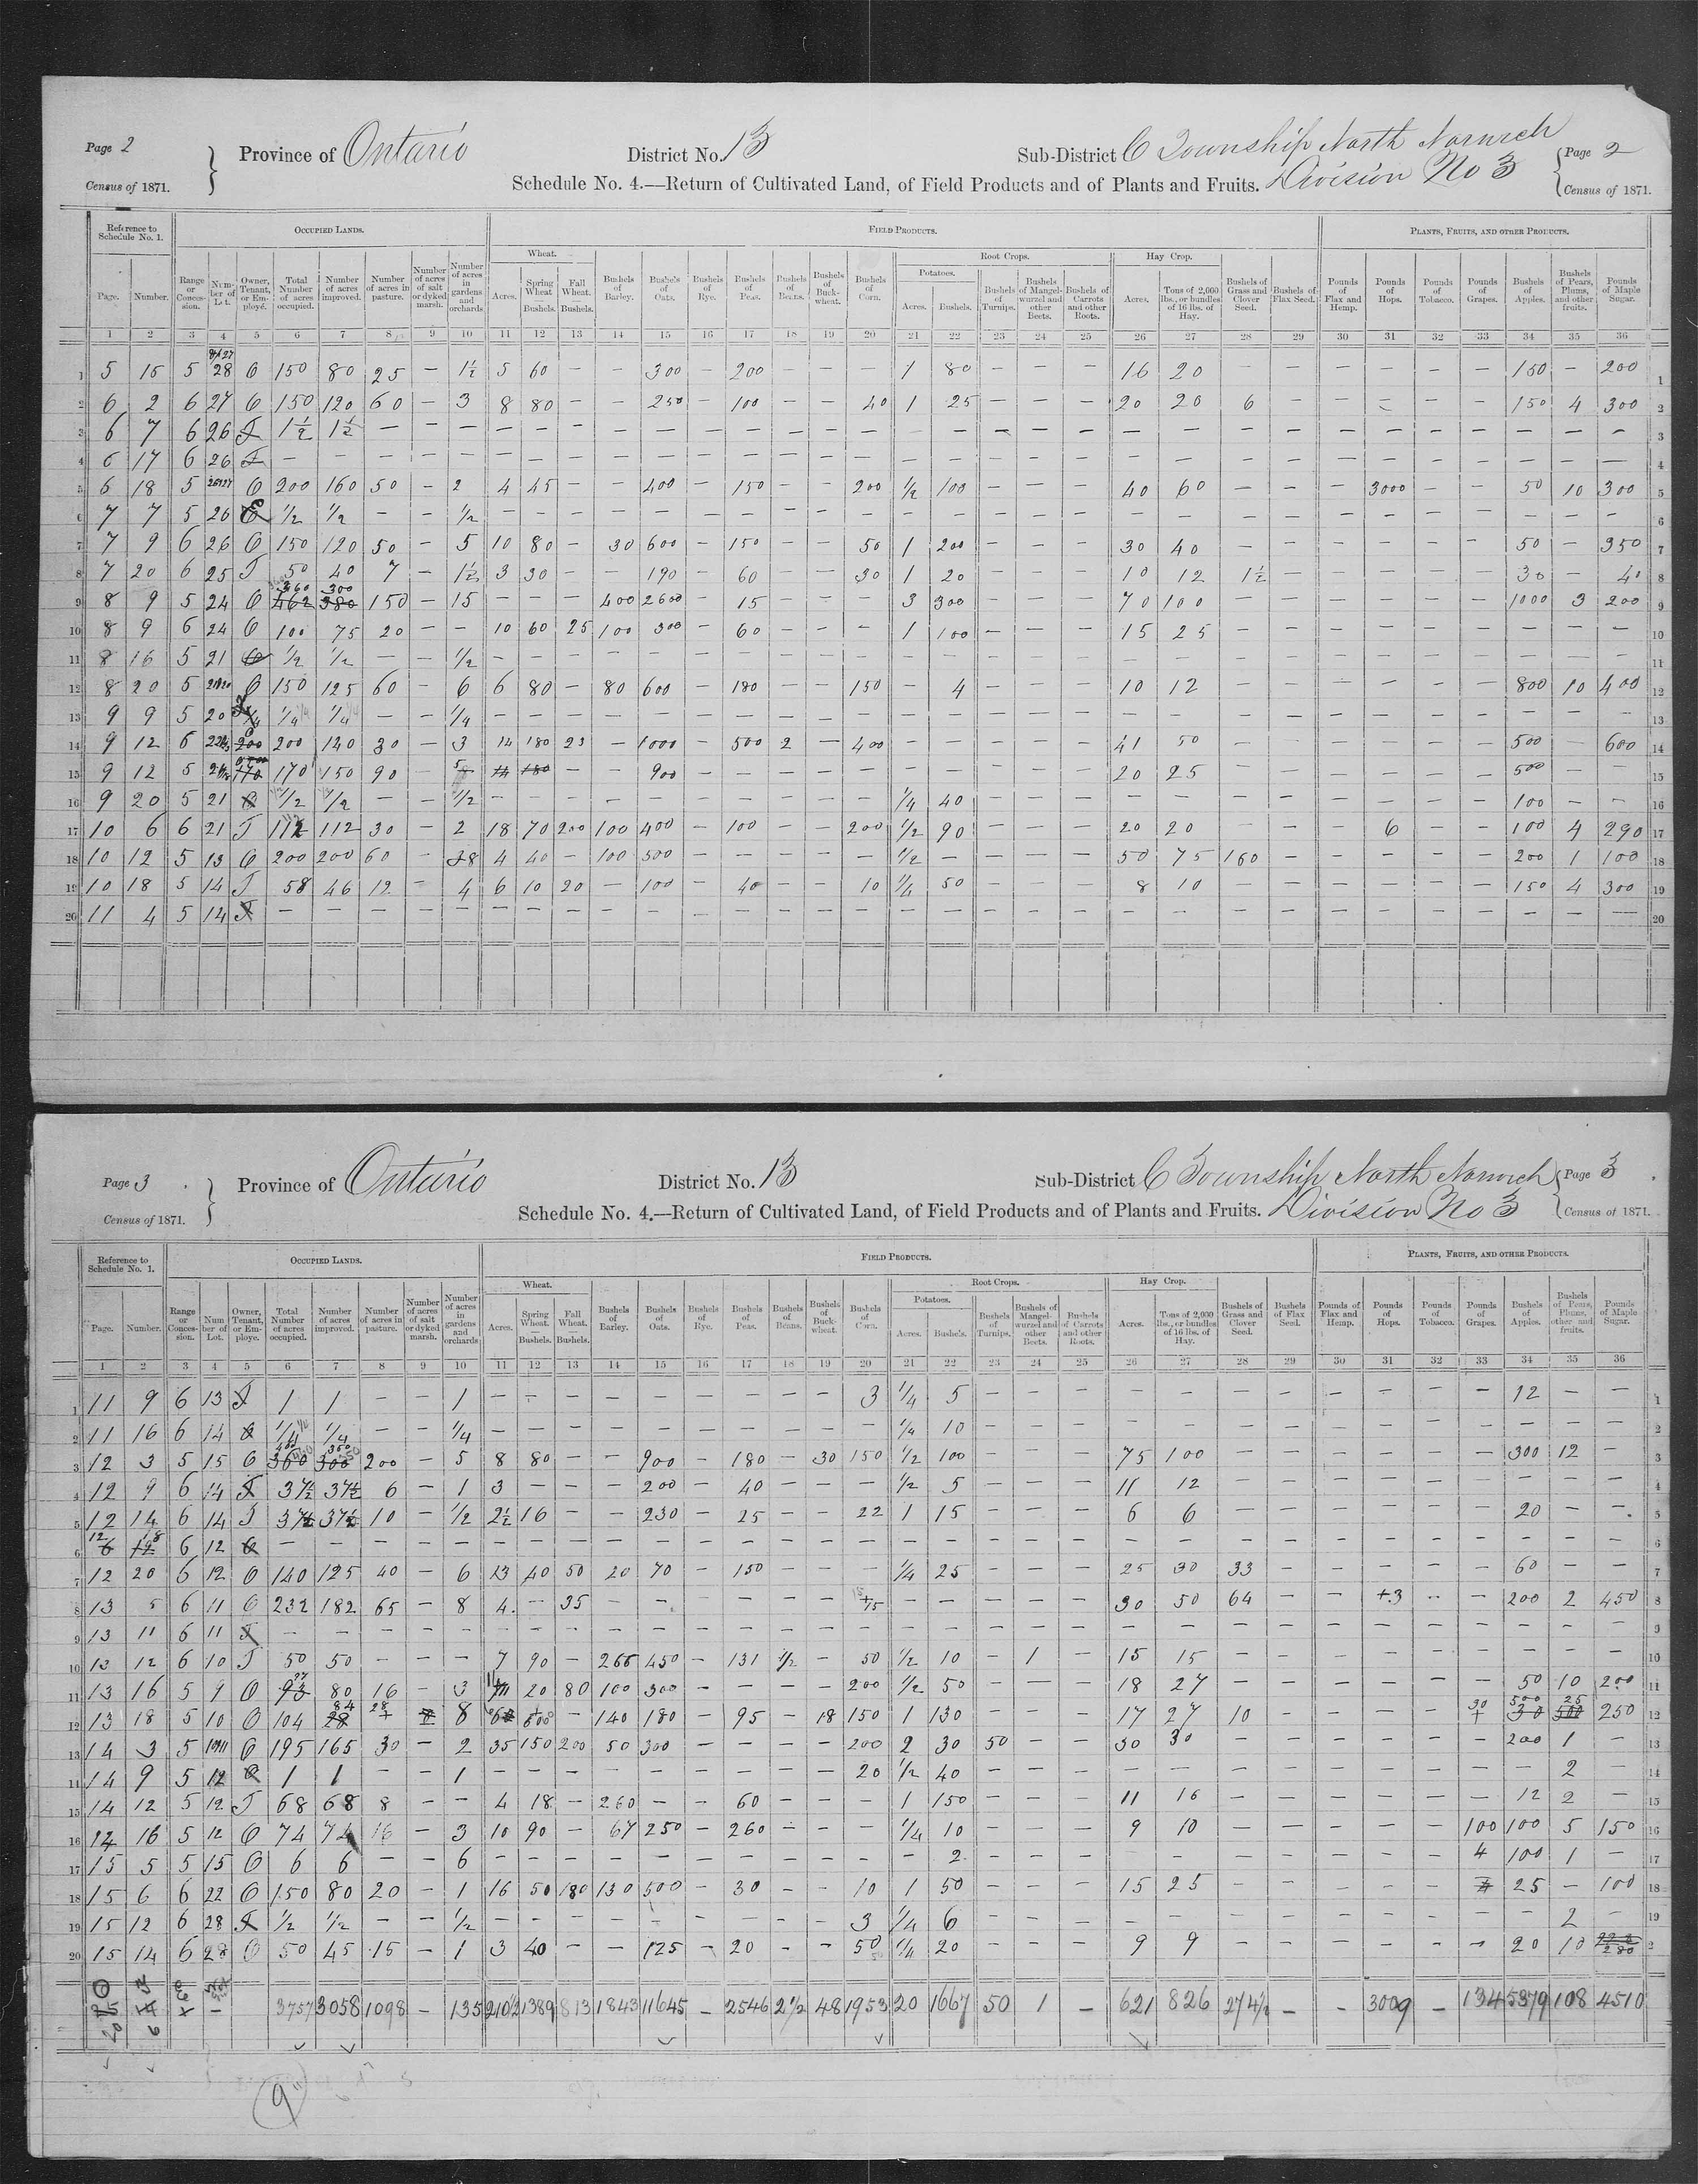 Page 2
Province of Ontario
District No. 13
Sub-District C Township North Norwich
Page 2
Census of 1871.
Schedule No. 4.—Return of Cultivated Land, of Field Products and of Plants and Fruits. Division No 3
Census of 1871.
Reference to Schedule No. 1. OCCUPIED LANDS. FIELD PRODUCTS. PLANTS, FRUITS, AND OTHER PRODUCTS.
Wheat. Root Crops. Hay Crop.
Potatoes.
Page. Number. Range or Conces-sion. Num-ber of Lot. Owner, Tenant, or Em-ployé. Total Number of acres occupied. Number of acres improved. Number of acres in pasture. Number of acres of salt or dyked marsh. Number of acres in gardens and orchards Acres. Spring Wheat — Bushels. Fall Wheat. — Bushels. Bushels of Barley. Bushels of Oats. Bushels of Rye. Bushels of Peas. Bushels of Beans. Bushels of Buck-wheat. Bushels of Corn. Acres. Bushels. Bushels of Turnips. Bushels of Mangel-wurzel and other Beets. Bushels of Carrots and other Roots. Acres. Tons of 2,000 lbs., or bundles of 16 lbs. of Hay. Bushels of Grass and Clover Seed. Bushels of Flax Seed. Pounds of Flax and Hemp. Pounds of Hops. Pounds of Tobacco. Pounds of Grapes. Bushels of Apples. Bushels of Pears, Plums, and other fruits. Pounds of Maple Sugar.
1 2 3 4 5 6 7 8 9 10 11 12 13 14 15 16 17 18 19 20 21 22 23 24 25 26 27 28 29 30 31 32 33 34 35 36
1 5 15 5 28 O 150 80 25 — 1½ 5 60 — — 300 — 200 — — — 1 80 — — — 16 20 — — — — — — 150 — 200 1
2 6 2 6 27 O 150 120 60 — 3 8 80 — — 250 — 100 — — 40 1 25 — — — 20 20 6 — — — — — 150 4 300 2
3 6 7 6 26 T 1½ 1½ — — — — — — — — — — — — — — — — — — — — — — — — — — — — — 3
4 6 17 6 26 T — — — — — — — — — — — — — — — — — — — — — — — — — — — — — — — 4
5 6 18 5 O 200 160 50 — 2 4 45 — — 400 — 150 — — 200 ½ 100 — — — 40 60 — — — 3000 — — 50 10 300 5
6 7 7 5 26 ½ ½ — — ½ — — — — — — — — — — — — — — — — — — — — — — — — — — 6
7 7 9 6 26 O 150 120 50 — 5 10 80 — 30 600 — 150 — — 50 1 200 — — — 30 40 — — — — — — 50 — 350 7
8 7 20 6 25 T 50 40 7 — 1½ 3 30 — — 190 — 60 — — 30 1 20 — — — 10 12 1½ — — — — — 30 — 40 8
360 300
9 8 9 5 24 O 462 380 150 — 15 — — — 400 2600 — 15 — — — 3 300 — — — 70 100 — — — — — — 1000 3 200 9
10 8 9 6 24 O 100 75 20 — — 10 60 25 100 300 — 60 — — — 1 100 — — — 15 25 — — — — — — — — — 10
11 8 16 5 21 O ½ ½ — — ½ — — — — — — — — — — — — — — — — — — — — — — — — — — 11
12 8 20 5 O 150 125 60 — 6 6 80 — 80 600 — 180 — — 150 — 4 — — — 10 12 — — — — — — 800 10 400 12
13 9 9 5 20 ¼ ¼ — — ¼ — — — — — — — — — — — — — — — — — — — — — — — — — — 13
14 9 12 6 200 200 140 30 — 3 14 180 23 — 1000 — 500 2 — 400 — — — — — 41 50 — — — — — — 500 — 600 14
15 9 12 5 170 170 150 90 — 5 14 180 — — 900 — — — — — — — — — — 20 25 — — — — — — 500 — — 15
16 9 20 5 21 O ½ ½ — — ½ — — — — — — — — — — ¼ 40 — — — — — — — — — — — 100 — — 16
17 10 6 6 21 T 112 112 30 — 2 18 70 200 100 400 — 100 — — 200 ½ 90 — — — 20 20 — — — 6 — — 100 4 290 17
18 10 12 5 13 O 200 200 60 — 28 4 40 — 100 500 — — — — — ½ — — — — 50 75 160 — — — — — 200 1 100 18
19 10 18 5 14 T 58 46 12 — 4 6 10 20 — 100 — 40 — — 10 ¼ 50 — — — 8 10 — — — — — — 150 4 300 19
20 11 4 5 14 T — — — — — — — — — — — — — — — — — — — — — — — — — — — — — — — 20
Page 3
Province of Ontario
District No. 13
Sub-District C Township North Norwich
Page 3
Census of 1871.
Schedule No. 4.—Return of Cultivated Land, of Field Products and of Plants and Fruits. Division No 3
Census of 1871.
Reference to Schedule No. 1. OCCUPIED LANDS. FIELD PRODUCTS. PLANTS, FRUITS, AND OTHER PRODUCTS.
Wheat. Root Crops. Hay Crop.
Potatoes.
Page. Number. Range or Conces-sion. Num ber of Lot. Owner, Tenant, or Em-ploye. Total Number of acres occupied. Number of acres improved. Number of acres in pasture. Number of acres of salt or dyked marsh. Number of acres in gardens and orchards Acres. Spring Wheat. — Bushels. Fall Wheat. — Bushels. Bushels of Barley. Bushels of Oats. Bushels of Rye. Bushels of Peas. Bushels of Beans. Bushels of Buck-wheat. Bushels of Corn. Acres. Bushels. Bushels of Turnips. Bushels of Mangel-wurzel and other Beets. Bushels of Carrots and other Roots. Acres. Tons of 2,000 lbs., or bundles of 16 lbs. of Hay. Bushels of Grass and Clover Seed. Bushels of Flax Seed. Pounds of Flax and Hemp. Pounds of Hops. Pounds of Tobacco. Pounds of Grapes. Bushels of Apples. Bushels of Pears, Plums, other and fruits. Pounds of Maple Sugar.
1 2 3 4 5 6 7 8 9 10 11 12 13 14 15 16 17 18 19 20 21 22 23 24 25 26 27 28 29 30 31 32 33 34 35 36
1 11 9 6 13 T 1 1 — — 1 — — — — — — — — — 3 ¼ 5 — — — — — — — — — — — 12 — — 1
2 11 16 6 14 O ¼ ¼ — — ¼ — — — — — — — — — — ¼ 10 — — — — — — — — — — — — — — 2
400 350
3 12 3 5 15 O 360 300 200 — 5 8 80 — — 900 — 180 — 30 150 ½ 100 — — — 75 100 — — — — — — 300 12 — 3
4 12 9 6 14 T 37½ 37½ 6 — 1 3 — — — 200 — 40 — — — ½ 5 — — — 11 12 — — — — — — — — — 4
5 12 14 6 14 T 37½ 37½ 10 — ½ 2½ 16 — — 230 — 25 — — 22 1 15 — — — 6 6 — — — — — — 20 — — 5
12 18
6 6 12 6 12 O — — — — — — — — — — — — — — — — — — — — — — — — — — — — — — — 6
7 12 20 6 12 O 140 125 40 — 6 13 40 50 20 70 — 150 — — — ¼ 25 — — — 25 30 33 — — — — — 60 — — 7
8 13 5 6 11 O 232 182 65 — 8 4 — 35 — — — — — — +15 — — — — — 30 50 64 — — +3 — — 200 2 450 8
9 13 11 6 11 T — — — — — — — — — — — — — — — — — — — — — — — — — — — — — — — 9
10 13 12 6 10 T 50 50 — — — 7 90 — 266 450 — 131 ½ — 50 ½ 10 — 1 — 15 15 — — — — — — — — — 10
11 13 16 5 9 O 93 80 16 — 3 20 80 100 300 — — — — 200 ½ 50 — — — 18 27 — — — — — — 50 10 200 11
84 28 30 500 25
12 13 18 5 10 O 104 28 8 — 140 180 — 95 — 18 150 1 130 — — — 17 27 10 — — — — + 30 500 250 12
13 14 3 5 O 195 165 30 — 2 35 150 200 50 300 — — — — 200 2 30 50 — — 30 30 — — — — — — 200 1 — 13
14 14 9 5 12 O 1 1 — — 1 — — — — — — — — — 20 ½ 40 — — — — — — — — — — — — 2 — 14
15 14 12 5 12 T 68 68 8 — — 4 18 — 260 — — 60 — — — 1 150 — — — 11 16 — — — — — — 12 2 — 15
16 14 16 5 12 O 74 74 16 — 3 10 90 — 67 250 — 260 — — — ¼ 10 — — — 9 10 — — — — — 100 100 5 150 16
17 15 5 5 15 O 6 6 — — 6 — — — — — — — — — — — 2 — — — — — — — — — — 4 100 1 — 17
18 15 6 6 22 O 150 80 20 — 1 16 50 180 130 500 — 30 — — 10 1 50 — — — 15 25 — — — — — 25 — 100 18
19 15 12 6 28 T ½ ½ — — ½ — — — — — — — — — 3 ¼ 6 — — — — — — — — — — — — 2 — 19
20 15 14 6 28 O 50 45 15 — 1 3 40 — — 125 — 20 — — 50 ¼ 20 — — — 9 9 — — — — — — 20 10 2
3757 3058 1098 — 135 210½ 1389 813 1843 11645 — 2546 2½ 48 1953 20 1667 50 1 — 621 826 274½ — — 3009 — 134 5379 108 4510
9"